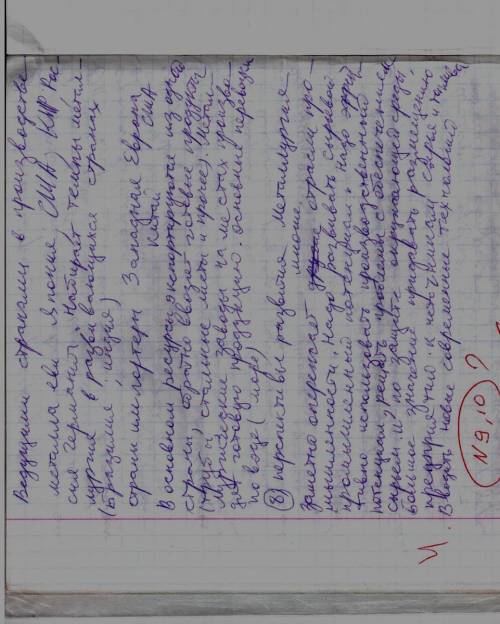 Ведущими странами в производстве
металла явл Япония США, КНР Рос
сия Германия. Набирает темпы метал-
лургия в развивающихся странах
(Бразилия, Индия)
страны импортеры Западная Европа,
Китай США
В основном ресурсы экспортируются из одной
страны, а обратно ввозят готовые продукты
(трубы, стальные листы и прочее). Метал-
лургические заводы на местах произво-
дят готовую продукцию. основные перевозки
по воде (море)
⑧ перспективы развития металлургия
заметно опережает многие отрасли про-
мышленности. Надо развивать сырьевой
промышленный потенциал. Надо эффек
тивно использовать производственный
потенциал, решать проблемы с обеспечением
сырьем и по защите окружающей среды,
большое значение придавать размещению
предприятий к источникам сырья и топлива
Вводить новые современные технологии
Ч.
N 9, 10 ?